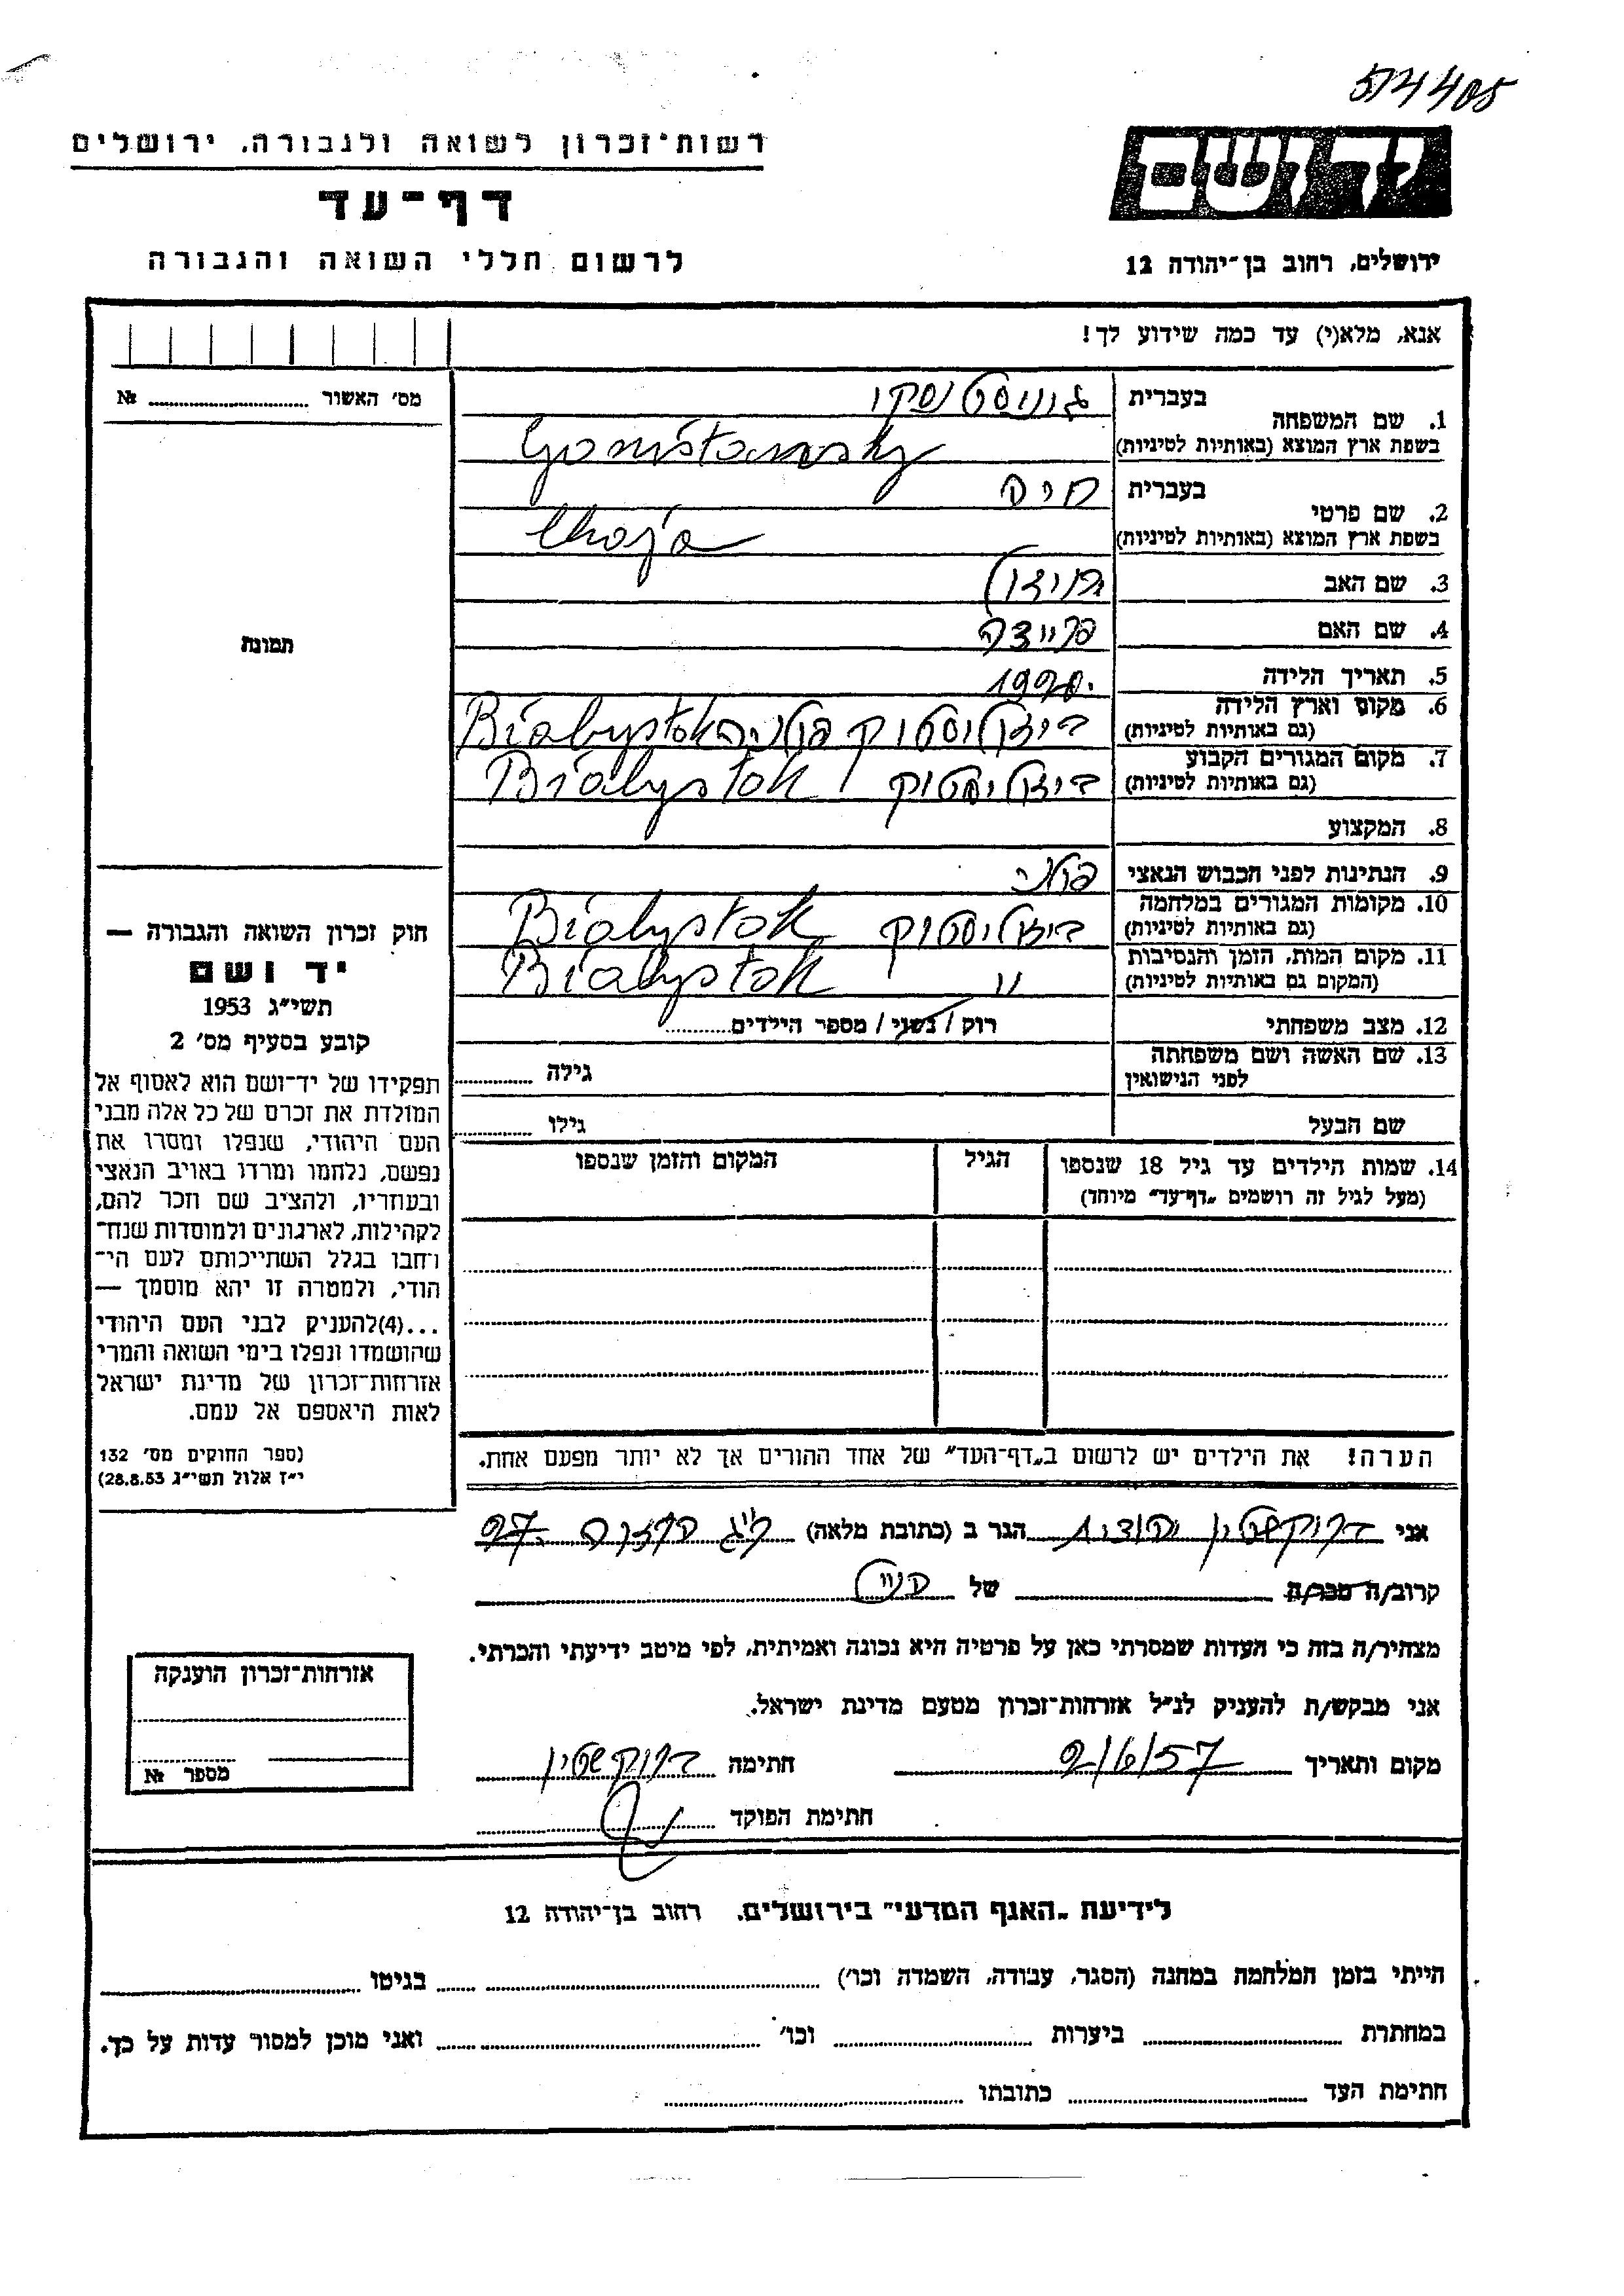 514405
רשות־זכרון לשואה ולגבורה, ירושלים
ידושם
דף־עד
לרשום חללי השואה והגבורה
ירושלים, רחוב בן־יהודה 12
אנא, מלא(י) עד כמה שידוע לך!
מס׳ האשור № 
תמונה
1. שם המשפחה
בעברית
בשפת ארץ המוצא (באותיות לטיניות)
2. שם פרטי
בעברית חיה
בשפת ארץ המוצא (באותיות לטיניות) Chaja
3. שם האב
4. שם האם
5. תאריך הלידה 1920.
6. מקום וארץ הלידה ביאליסטוק פולניה Białystok
(גם באותיות לטיניות)
7. מקום המגורים הקבוע ביאליסטוק Białystok
(גם באותיות לטיניות)
8. המקצוע
9. הנתינות לפני הכבוש הנאצי פולני
10. מקומות המגורים במלחמה ביאליסטוק Białystok
(גם באותיות לטיניות)
11. מקום המות, הזמן והנסיבות " Białystok
(המקום גם באותיות לטיניות)
12. מצב משפחתי רוק / נשוי / מספר הילדים
13. שם האשה ושם משפחתה גילה
לפני הנישואין
שם הבעל גילו
14. שמות הילדים עד גיל 18 שנספו הגיל המקום והזמן שנספו
(מעל לגיל זה רושמים „דף־עד" מיוחד)
חוק זכרון השואה והגבורה —
יד ושם
תשי״ג 1953
קובע בסעיף מס׳ 2
תפקידו של יד־ושם הוא לאסוף אל
המולדת את זכרם של כל אלה מבני
העם היהודי, שנפלו ומסרו את
נפשם, נלחמו ומרדו באויב הנאצי
ובעוזריו, ולהציב שם וזכר להם,
לקהילות, לארגונים ולמוסדות שנח־
רבו בגלל השתייכותם לעם הי־
הודי, ולמטרה זו יהא מוסמך —
...(4)להעניק לבני העם היהודי
שהושמדו ונפלו בימי השואה והמרי
אזרחות־זכרון של מדינת ישראל
לאות היאספם אל עמם.
(ספר החוקים מס׳ 132
י״ז אלול תשי״ג 28.8.53)
הערה! את הילדים יש לרשום ב„דף־העד" של אחד ההורים אך לא יותר מפעם אחת.
אני ברוקשטיין יהודית הגר ב (כתובת מלאה) 27
קרוב/ה מכר/ה של
מצהיר/ה בזה כי העדות שמסרתי כאן על פרטיה היא נכונה ואמיתית, לפי מיטב ידיעתי והכרתי.
אני מבקש/ת להעניק לנ״ל אזרחות־זכרון מטעם מדינת ישראל.
מקום ותאריך 2/6/57 חתימה ברוקשטיין
חתימת הפוקד
אזרחות־זכרון הוענקה
מספר №
לידיעת „האגף המדעי" בירושלים, רחוב בן־יהודה 12
הייתי בזמן המלחמה במחנה (הסגר, עבודה, השמדה וכו׳) בגיטו
במחתרת ביערות וכו׳ ואני מוכן למסור עדות על כך.
חתימת העד כתובתו